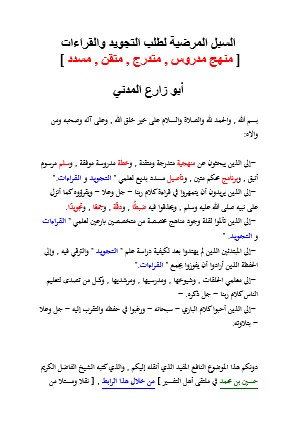 السبل المرضية لطلب التجويد والقراءات
[ منهج مدروس , متدرج , متقن , مسدد ]
أبو زارع المدني
بسم الله , والحمد لله والصلاة والسلام على خير خلق الله , وعلى آله وصحبه ومن
والاه:
–إلى الذين يبحثون عن منهجية متدرجة ومتقنة , وخطة مدروسة موفقة , وسلم مرسوم
أنيق , وبرنامج محكم متين , وتأصيل مسدد بديع لعلمي " التجويد و القراءات."
–إلى الذين يريدون أن يتمهروا في قراءة كلام ربنا – جل وعلا – ويقرؤوه كما أنزل
على نبيه صلى الله عليه وسلم , ويحذقوا فيه ضبطًا , ودقّة , وجمعًا , وتجويدًا.
–إلى الذين تألموا لقلة وجود مناهج مخصصة من متخصصين بارعين لعلمي " القراءات
و التجويد. "
–إلى المبتدئين الذين لم يهتدوا بعد لكيفية دراسة علم " التجويد " والترقي فيه , وإلى
الحفظة الذين أرادوا أن يفوزوا بجمع " القراءات."
–إلى معلمي الحلقات , وشيوخها , ومدرسيها , ومرشديها , وكل من تصدى لتعليم
الناس كلام ربنا – جل ذكره. –
–إلى الذين أحبوا كلام الباري – سبحانه – ورغبوا في حفظه والتقرب إليه – جل وعلا
– بتلاوته.
دونكم هذا الموضوع النافع المفيد الذي أنقله إليكم , والذي كتبه الشيخ الفاضل الكريم
حسين بن محمد في ملتقى أهل التفسير [ من خلال هذا الرابط , [ نقلا ومستلا من